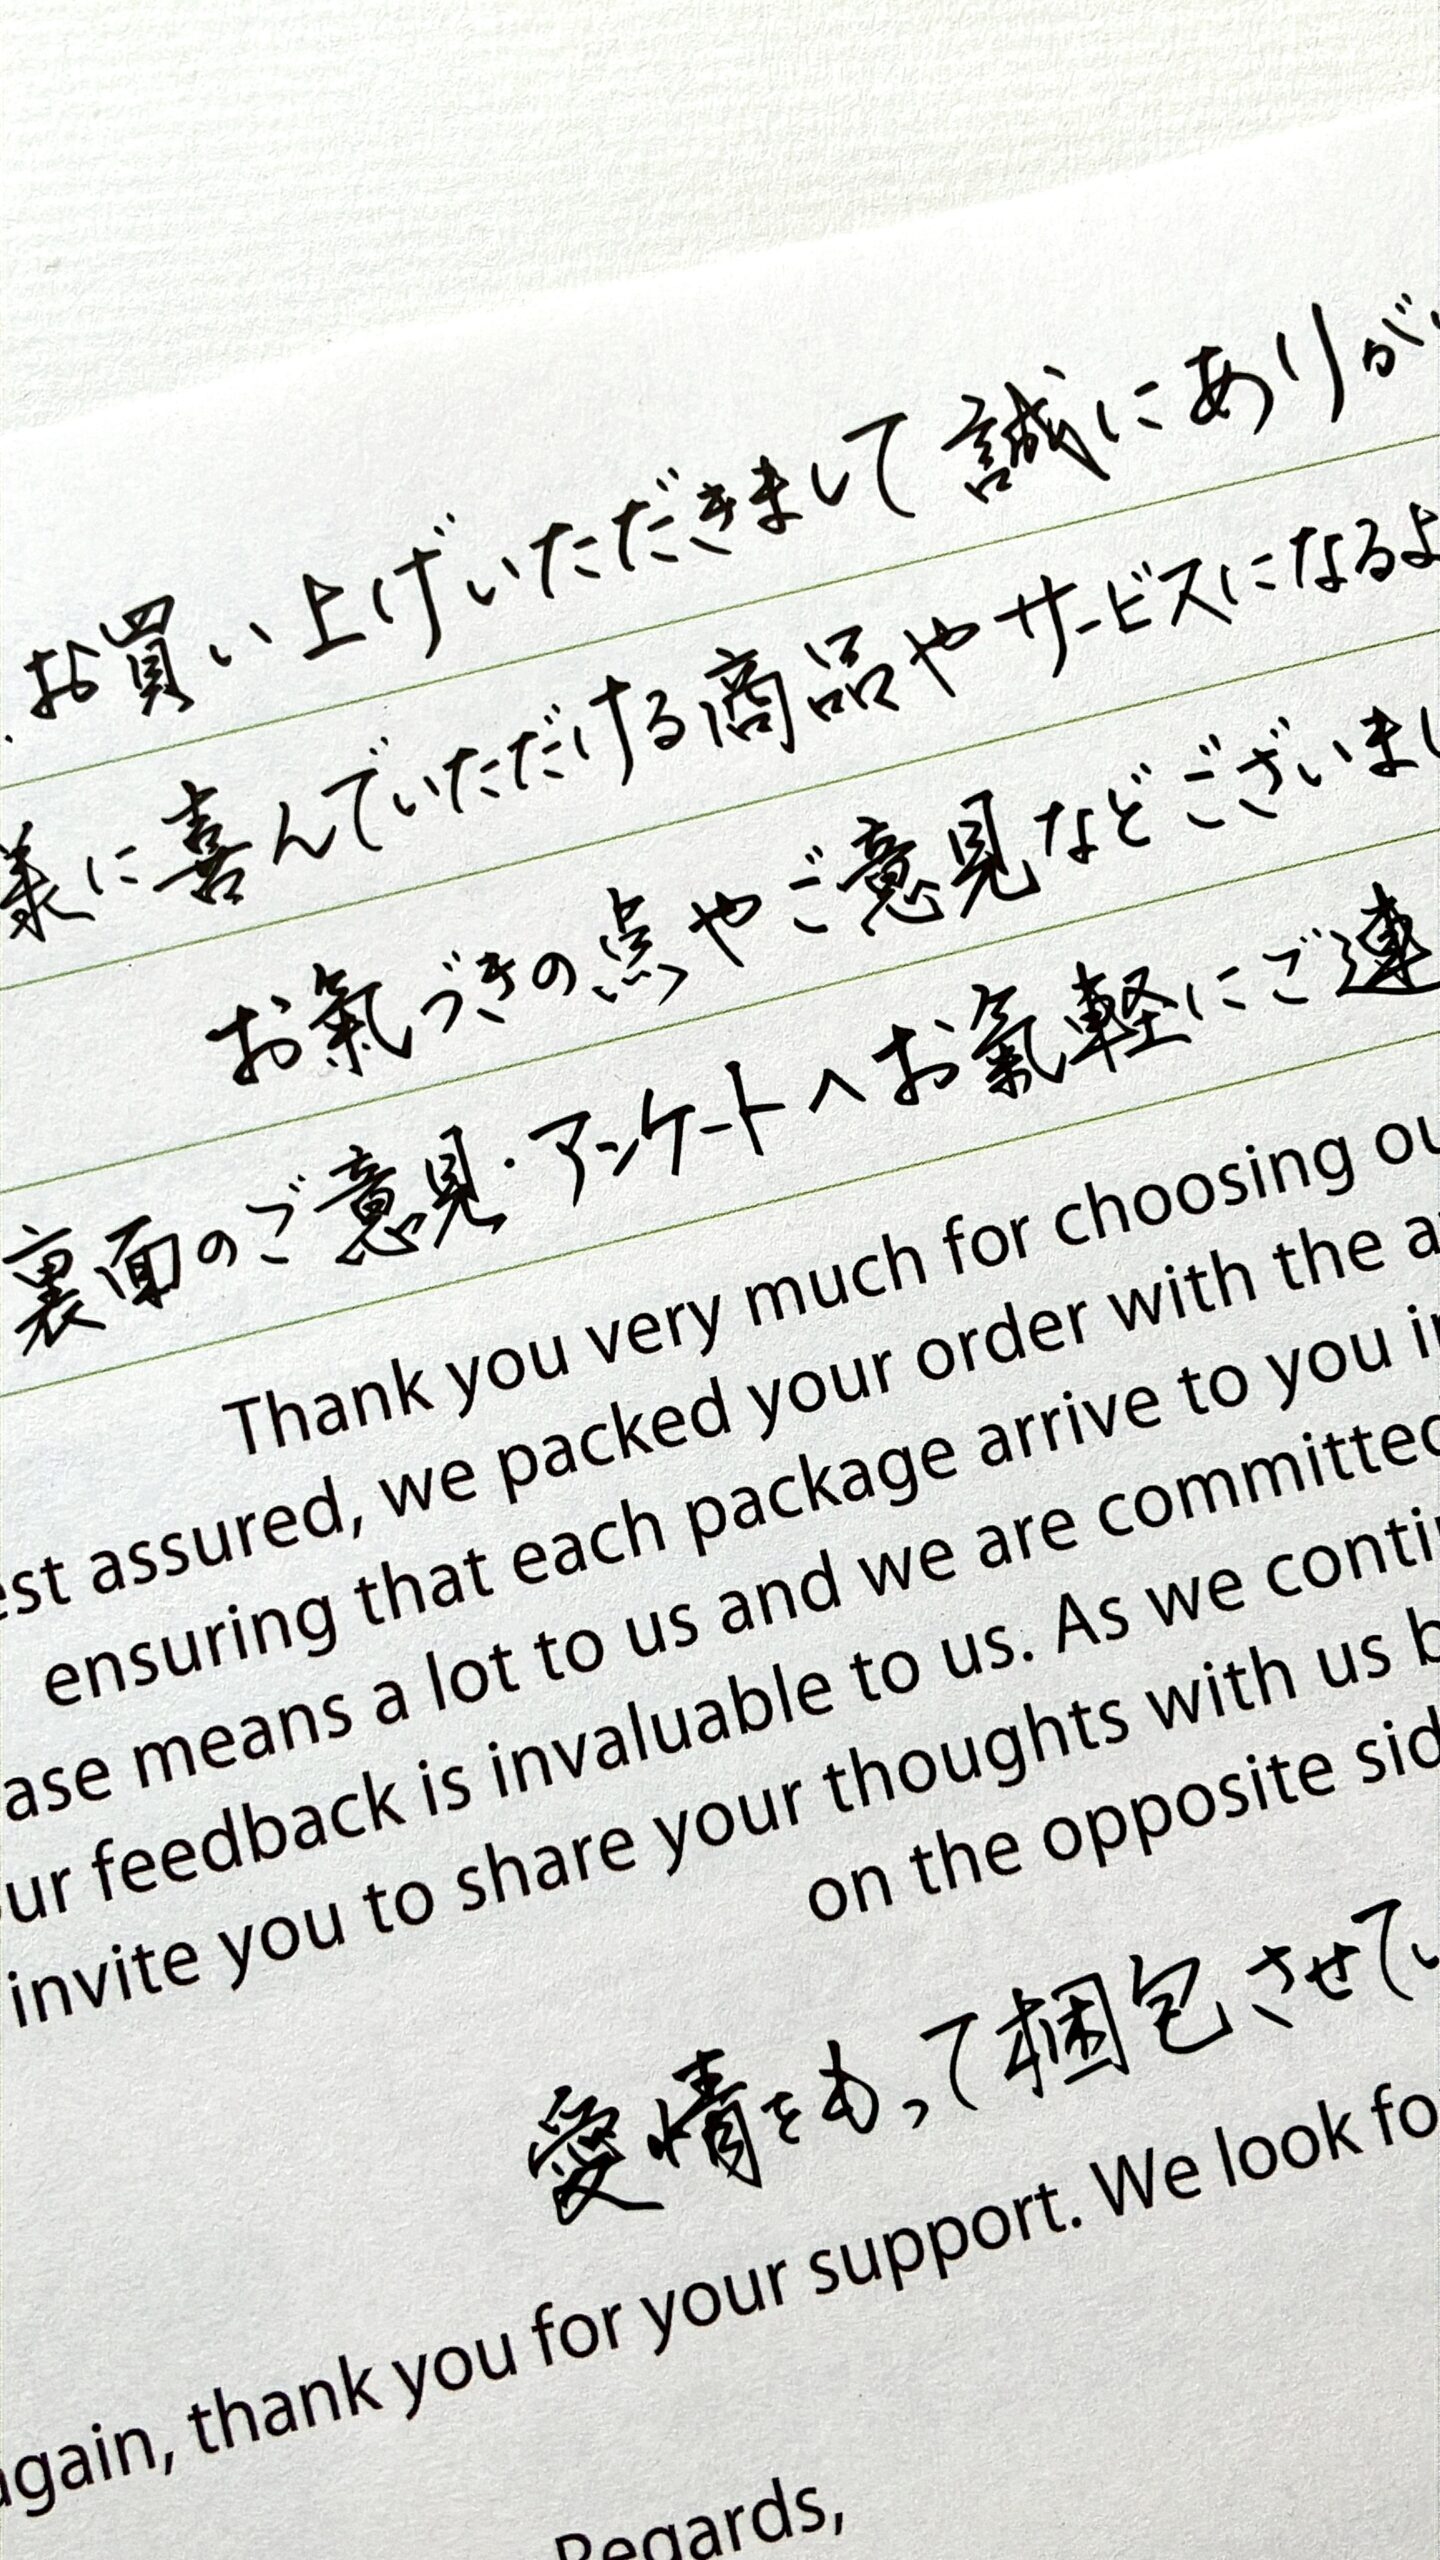 お買い上げいただきまして誠にありが
様に喜んでいただける商品やサービスになるよ
お氣づきの点やご意見などございまし
裏面のご意見・アンケートへお氣軽にご連
Thank you very much for choosing ou
est assured, we packed your order with the a
ensuring that each package arrive to you i
ase means a lot to us and we are committed
ur feedback is invaluable to us. As we conti
invite you to share your thoughts with us b
on the opposite sid
愛情をもって梱包させてい
again, thank you for your support. We look fo
Regards,